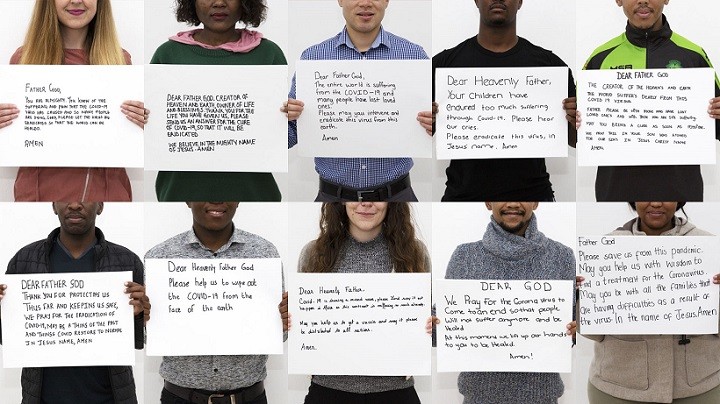 FATHER GOD,
YOU ARE ALMIGHTY. YOU KNOW OF THE
SUFFERING AND PAIN THAT THE COVID-19
HAS CAUSED AND SO MANY PEOPLE
ARE DYING. LORD, PLEASE LET THE VIRUS BE
ERADICATED SO THAT THE WORLD CAN BE
HEALED.
AMEN
DEAR FATHER GOD, CREATOR OF
HEAVEN AND EARTH, OWNER OF LIFE
AND BLESSINGS. THANK YOU FOR THE
LIFE YOU HAVE GIVEN US. PLEASE
SEND US AN ANSWER FOR THE CURE
OF COVID-19, SO THAT IT WILL BE
ERADICATED
WE BELIEVE IN THE MIGHTY NAME
OF JESUS. AMEN
Dear Father God,
The entire world is suffering
from the COVID-19 and
many people have lost loved
ones.
Please may you intervene and
eradicate this virus from this
earth.
Amen
Dear Heavenly Father,
Your children have
endured too much suffering
through Covid-19. Please hear
our cries.
Please eradicate this virus, in
Jesus name, Amen
DEAR FATHER GOD
THE CREATOR OF THE HEAVENS AND EARTH
THE WORLD SUFFERS DEARLY FROM THIS
COVID 19 VIRUS.
MANY PEOPLE HAVE LOST
LOVED ONES AND
MAY YOU BRING A CURE AS SOON AS POSSIBLE.
WE PRAY THIS IN YOUR SON WHO ATONED
FOR OUR SINS IN JESUS CHRIST NAME
AMEN.
DEAR FATHER GOD
THANK YOU FOR PROTECTING US
THUS FAR AND KEEPING US SAFE,
WE PRAY FOR THE ERADICATION OF
COVID-19, MAY BE A THING OF THE PAST
AND THINGS COULD RESTORE TO NORMAL
IN JESUS NAME, AMEN
Dear Heavenly Father God
Please help us to wipe out
the COVID-19 from the
face of the earth
Dear Heavenly Father.
Covid-19 is showing a second wave, please
happen in Africa as this continent is suffering so much already
May you help us to get a vaccine and may it please
be distributed to all nations.
Amen.
DEAR GOD
We Pray for the Corona virus to
come to an end so that people
will not suffer anymore and be
Healed
At this moment we lift up our hands
to you to be Healed.
Amen!
Father God
Please save us from this pandemic.
May you help us with wisdom to
find a treatment for the Coronavirus.
May you be with all the Families that
are having difficulties as a result of
the virus. In the name of Jesus. Amen